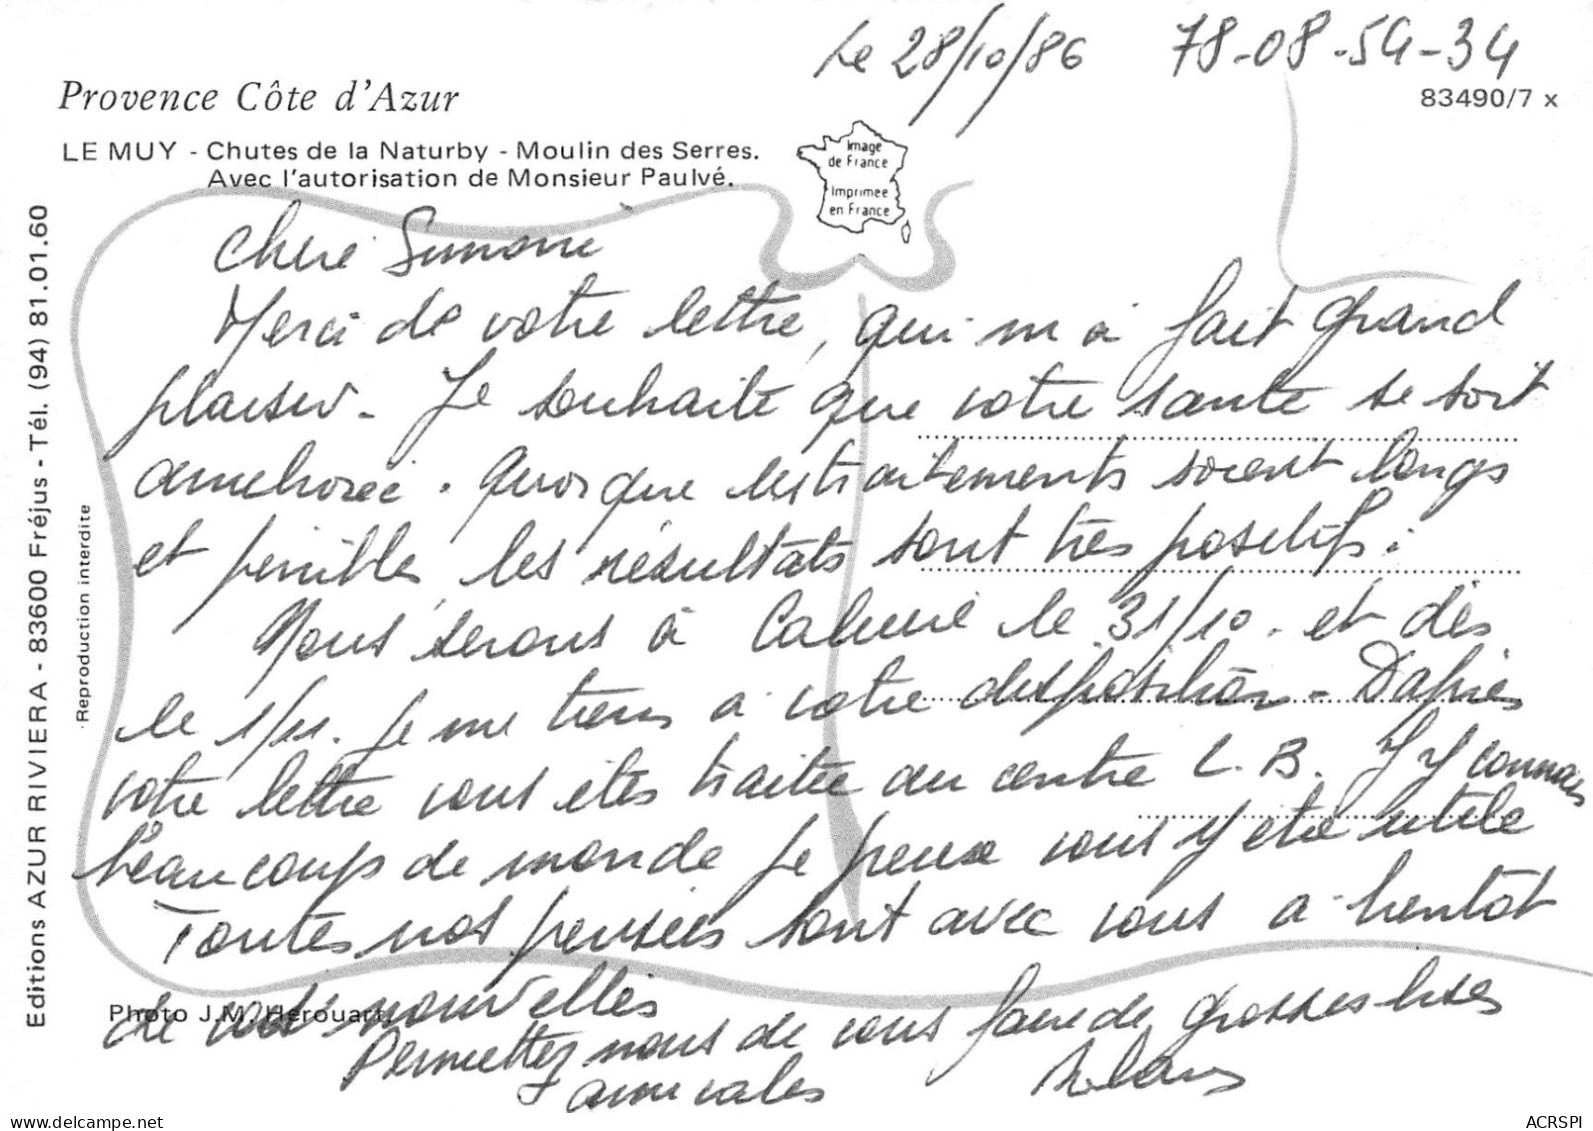 Le 28/10/86 78-08-54-34
Provence Côte d'Azur
83490/7 x
LE MUY - Chutes de la Naturby - Moulin des Serres.
Avec l'autorisation de Monsieur Paulvé.
Image
de France
Imprimée
en France
Editions AZUR RIVIERA - 83600 Fréjus - Tél. (94) 81.01.60
Reproduction interdite
Chère Simone
Merci de votre lettre, qui m'a fait grand
plaisir. Je souhaite que votre santé se soit
améliorée. Quoique les traitements soient longs
et pénibles, les résultats sont très positifs.
Nous serons à Caluire le 31/10. et dès
le 1/11. je me tiens à votre disposition - D'après
votre lettre vous êtes traitée au centre L. B. J'y connais
beaucoup de monde je peux vous y être utile
Toutes nos pensées sont avec vous a bientôt
de vos nouvelles
Photo J.M. Herouart.
Permettez nous de vous faire de grosses bises
amicales